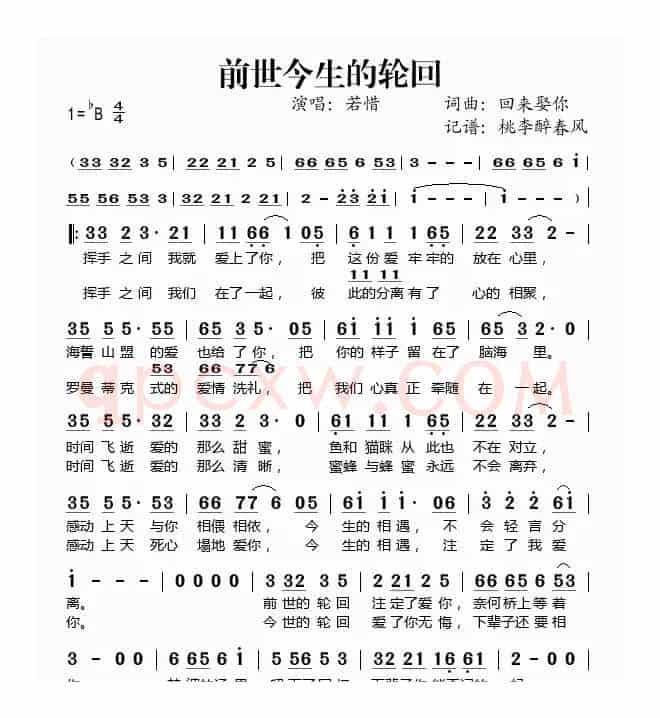 前世今生的轮回
1=♭B 4/4
演唱：若惜
词曲：回来娶你
记谱：桃李醉春风
（33 32 3 5 | 22 21 2 5 | 66 65 6 53 | 3 - - - | 66 65 6 i |
55 56 53 3 | 32 21 2 21 | 2 - 23 21 | i - - - | i - - - ）|
‖: 33 2 3· 21 | 11 66 1 05 | 6 1 1 1 65 | 22 33 2 - |
挥手 之间 我就 爱上了你， 把 这份爱 牢牢的 放在 心里，
11 11
挥手 之间 我们 在了一起， 彼 此的分离有了 心的 相聚，
35 5 55· 55 | 65 3 2 35 | 6i ii 1 65 | 65 3 2·0 |
海誓 山盟 的爱 也给了你， 把 你的样子 留在了 脑海 里。
53 66 77 6
罗曼 蒂克 式的 爱情 洗礼， 把 我们 心真正 牵随 在 一起。
qpcxw.COM
35 5 5· 32 | 33 2 3· 0 | 61 1 1· 65 | 22 33 2 - |
时间 飞逝 爱的 那么 甜蜜， 鱼和 猫眯 从此也 不在 对立，
时间 飞逝 爱的 那么 清晰， 蜜蜂 与蜂蜜 永远 不会 离弃，
35 5 5· 53 | 66 77 6 05 | 6i i i· 06 | 3 2 2 6i |
感动 上天 与你 相偎 相依， 今 生的 相遇， 不 会 轻言 分
感动 上天 死心 塌地 爱你， 今 生的 相遇， 注 定了 我 爱
i - - - | 0 0 0 0 | 3 32 3 5 | 2 21 2 5 | 66 65 6 53 |
离。 前 世的 轮 回 注 定了 爱 你， 奈何 桥上 等 着
你。 今 世的 轮 回 爱 了你 无 悔， 下辈 子还 要 相
3 - 0 0 | 6 65 6 i | 5 56 5 3 | 2 21 16 61 | 2 - 0 0 |